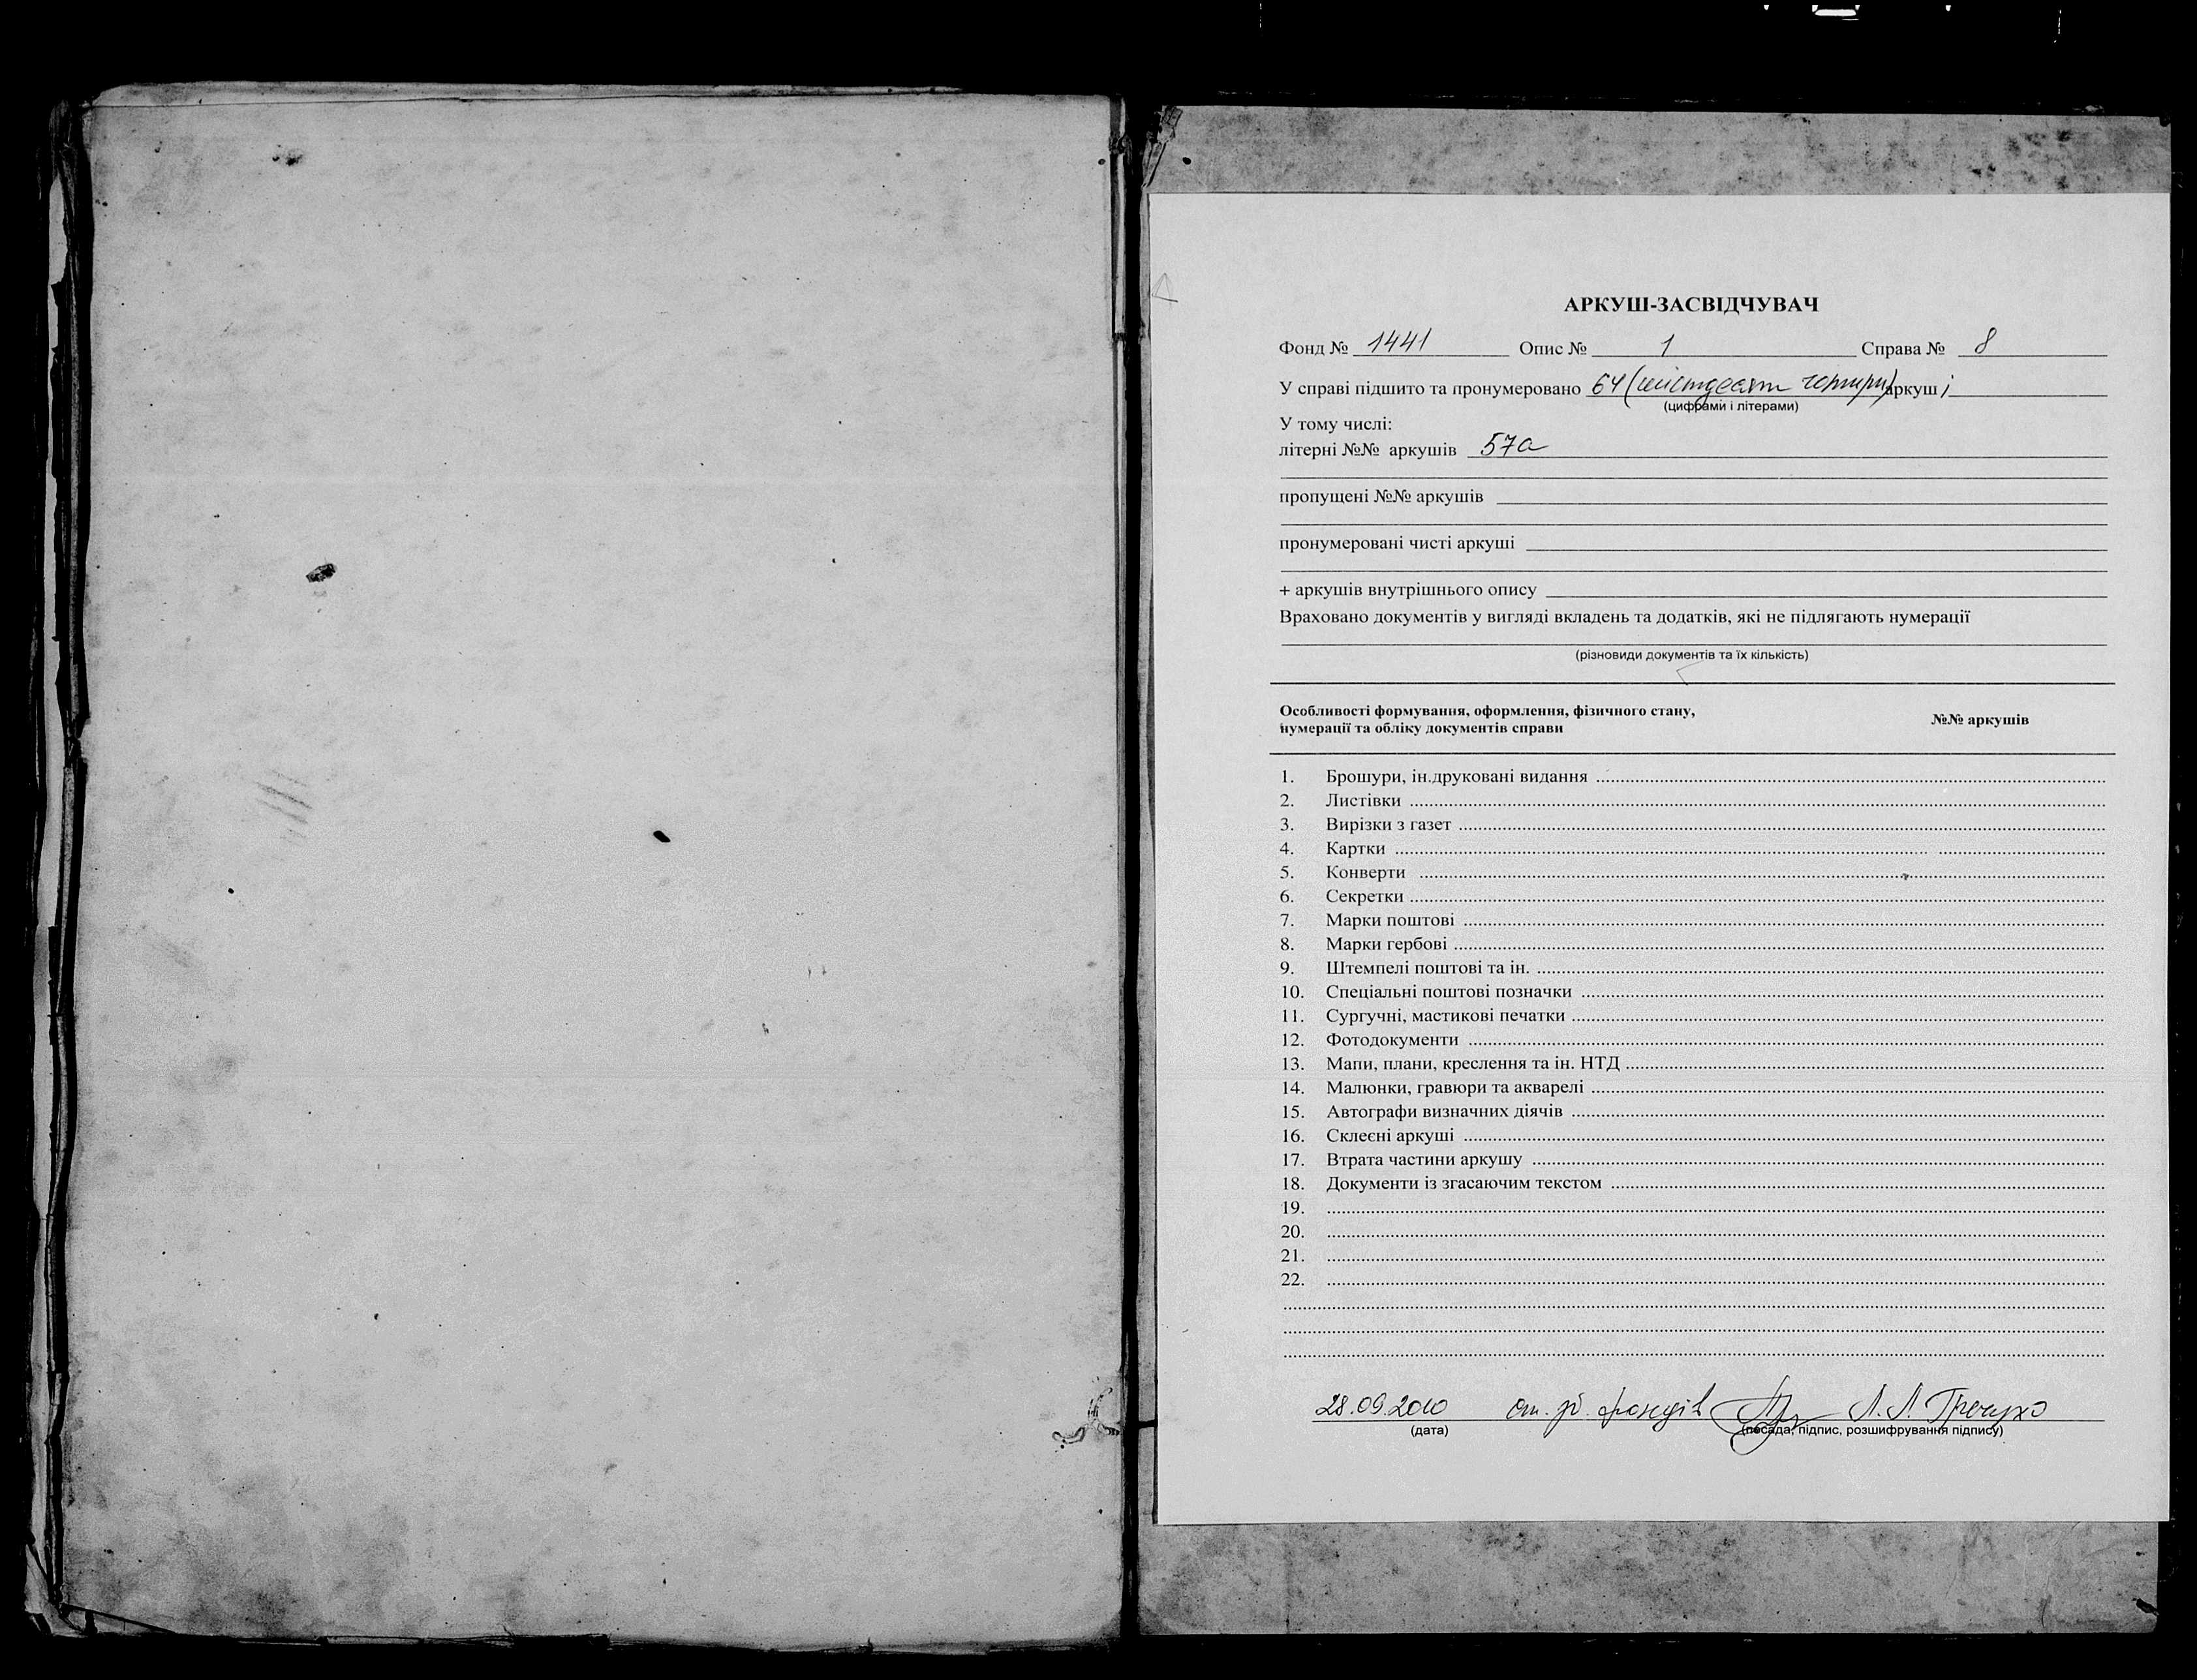 АРКУШ-ЗАСВІДЧУВАЧ
Фонд № 1441 Опис № 1 Справа № 8
У справі підшито та пронумеровано 64 (шістдесят чотири) аркуші
(цифрами і літерами)
У тому числі:
літерні №№ аркушів 57а
пропущені №№ аркушів
пронумеровані чисті аркуші
+ аркушів внутрішнього опису
Враховано документів у вигляді вкладень та додатків, які не підлягають нумерації
(різновиди документів та їх кількість)
Особливості формування, оформлення, фізичного стану, №№ аркушів
нумерації та обліку документів справи
1. Брошури, ін.друковані видання
2. Листівки
3. Вирізки з газет
4. Картки
5. Конверти
6. Секретки
7. Марки поштові
8. Марки гербові
9. Штемпелі поштові та ін.
10. Спеціальні поштові позначки
11. Сургучні, мастикові печатки
12. Фотодокументи
13. Мапи, плани, креслення та ін. НТД
14. Малюнки, гравюри та акварелі
15. Автографи визначних діячів
16. Склеєні аркуші
17. Втрата частини аркушу
18. Документи із згасаючим текстом
19.
20.
21.
22.
28.09.2010 ст. зб. фондів Л. Л.
(дата) (посада, підпис, розшифрування підпису)